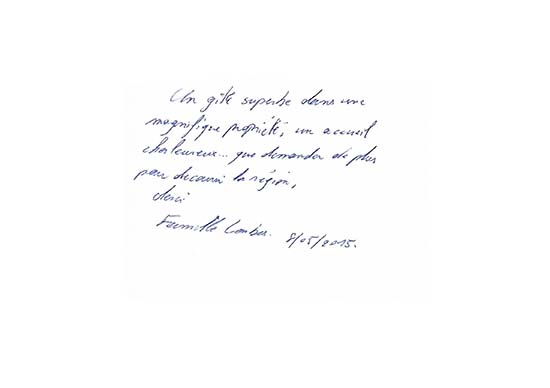 Un gîte superbe dans une
magnifique propriété, un accueil
chaleureux... que demander de plus
pour découvrir la région,
Merci
Famille 8/05/2015.